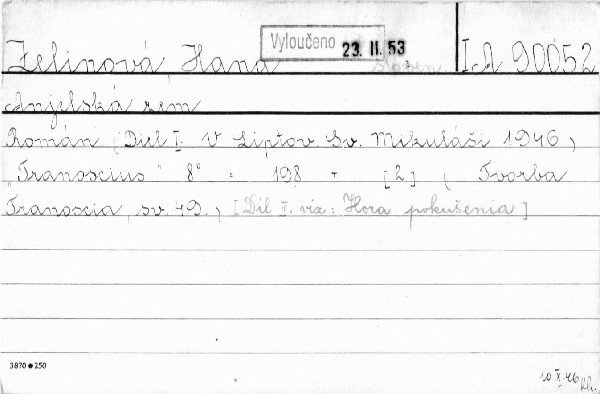 Vyloučeno 23. II. 53
Zelinová, Hana I A 90052
Anjelská zem
Román. (Diel I. V Liptov. Sv. Mikuláši 1946,
"Tranoscius" 8° - 198 + [2] ( Tvorba
Tranoscia, sv. 49., [Díl II. viz: Hora pokušenia]
3870 ● 250
10 X. 46